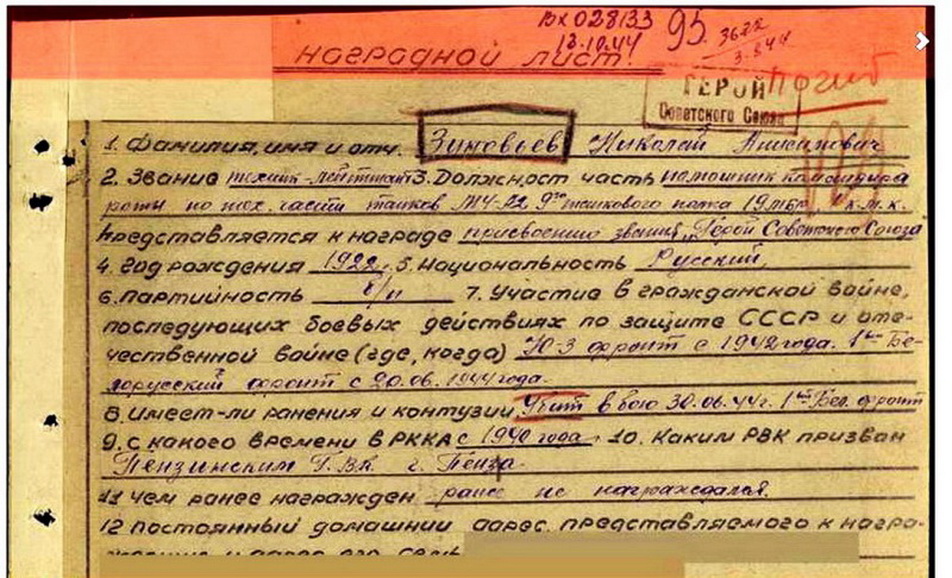 Вх 028133 95. 3622
13.10.44 3.8.44
НАГРАДНОЙ ЛИСТ.
ГЕРОЙ погиб
Советского Союза
1. Фамилия, имя и отч. Зиновьев Николай Анисимович
2. Звание техник-лейтенант 3. Должност часть помошник командира
роты по тех. части танков М4-А2 9го танкового полка 19 мбр, к.м.к.
Представляется к награде присвоению звания „Герой Советского Союза
4. Год рождения 1922. 5. Национальность Русский,
6. Партийность б/п 7. Участие в гражданской войне,
последующих боевых действиях по защите СССР и оте-
чественной войне (где, когда) Ю-З фронт с 1942 года. 1й Бе-
лорусский фронт с 20.06.1944 года.
8. Имеет-ли ранения и контузии Убит в бою 30.06.44 г. 1й Бел. фронт
9. С какого времени в РККА с 1940 года. 10. Каким РВК призван
Пензинским Г.В.К. г. Пенза
11 Чем ранее награжден ранее не награждался.
12 Постоянный домашнии адрес представляемого к награ-